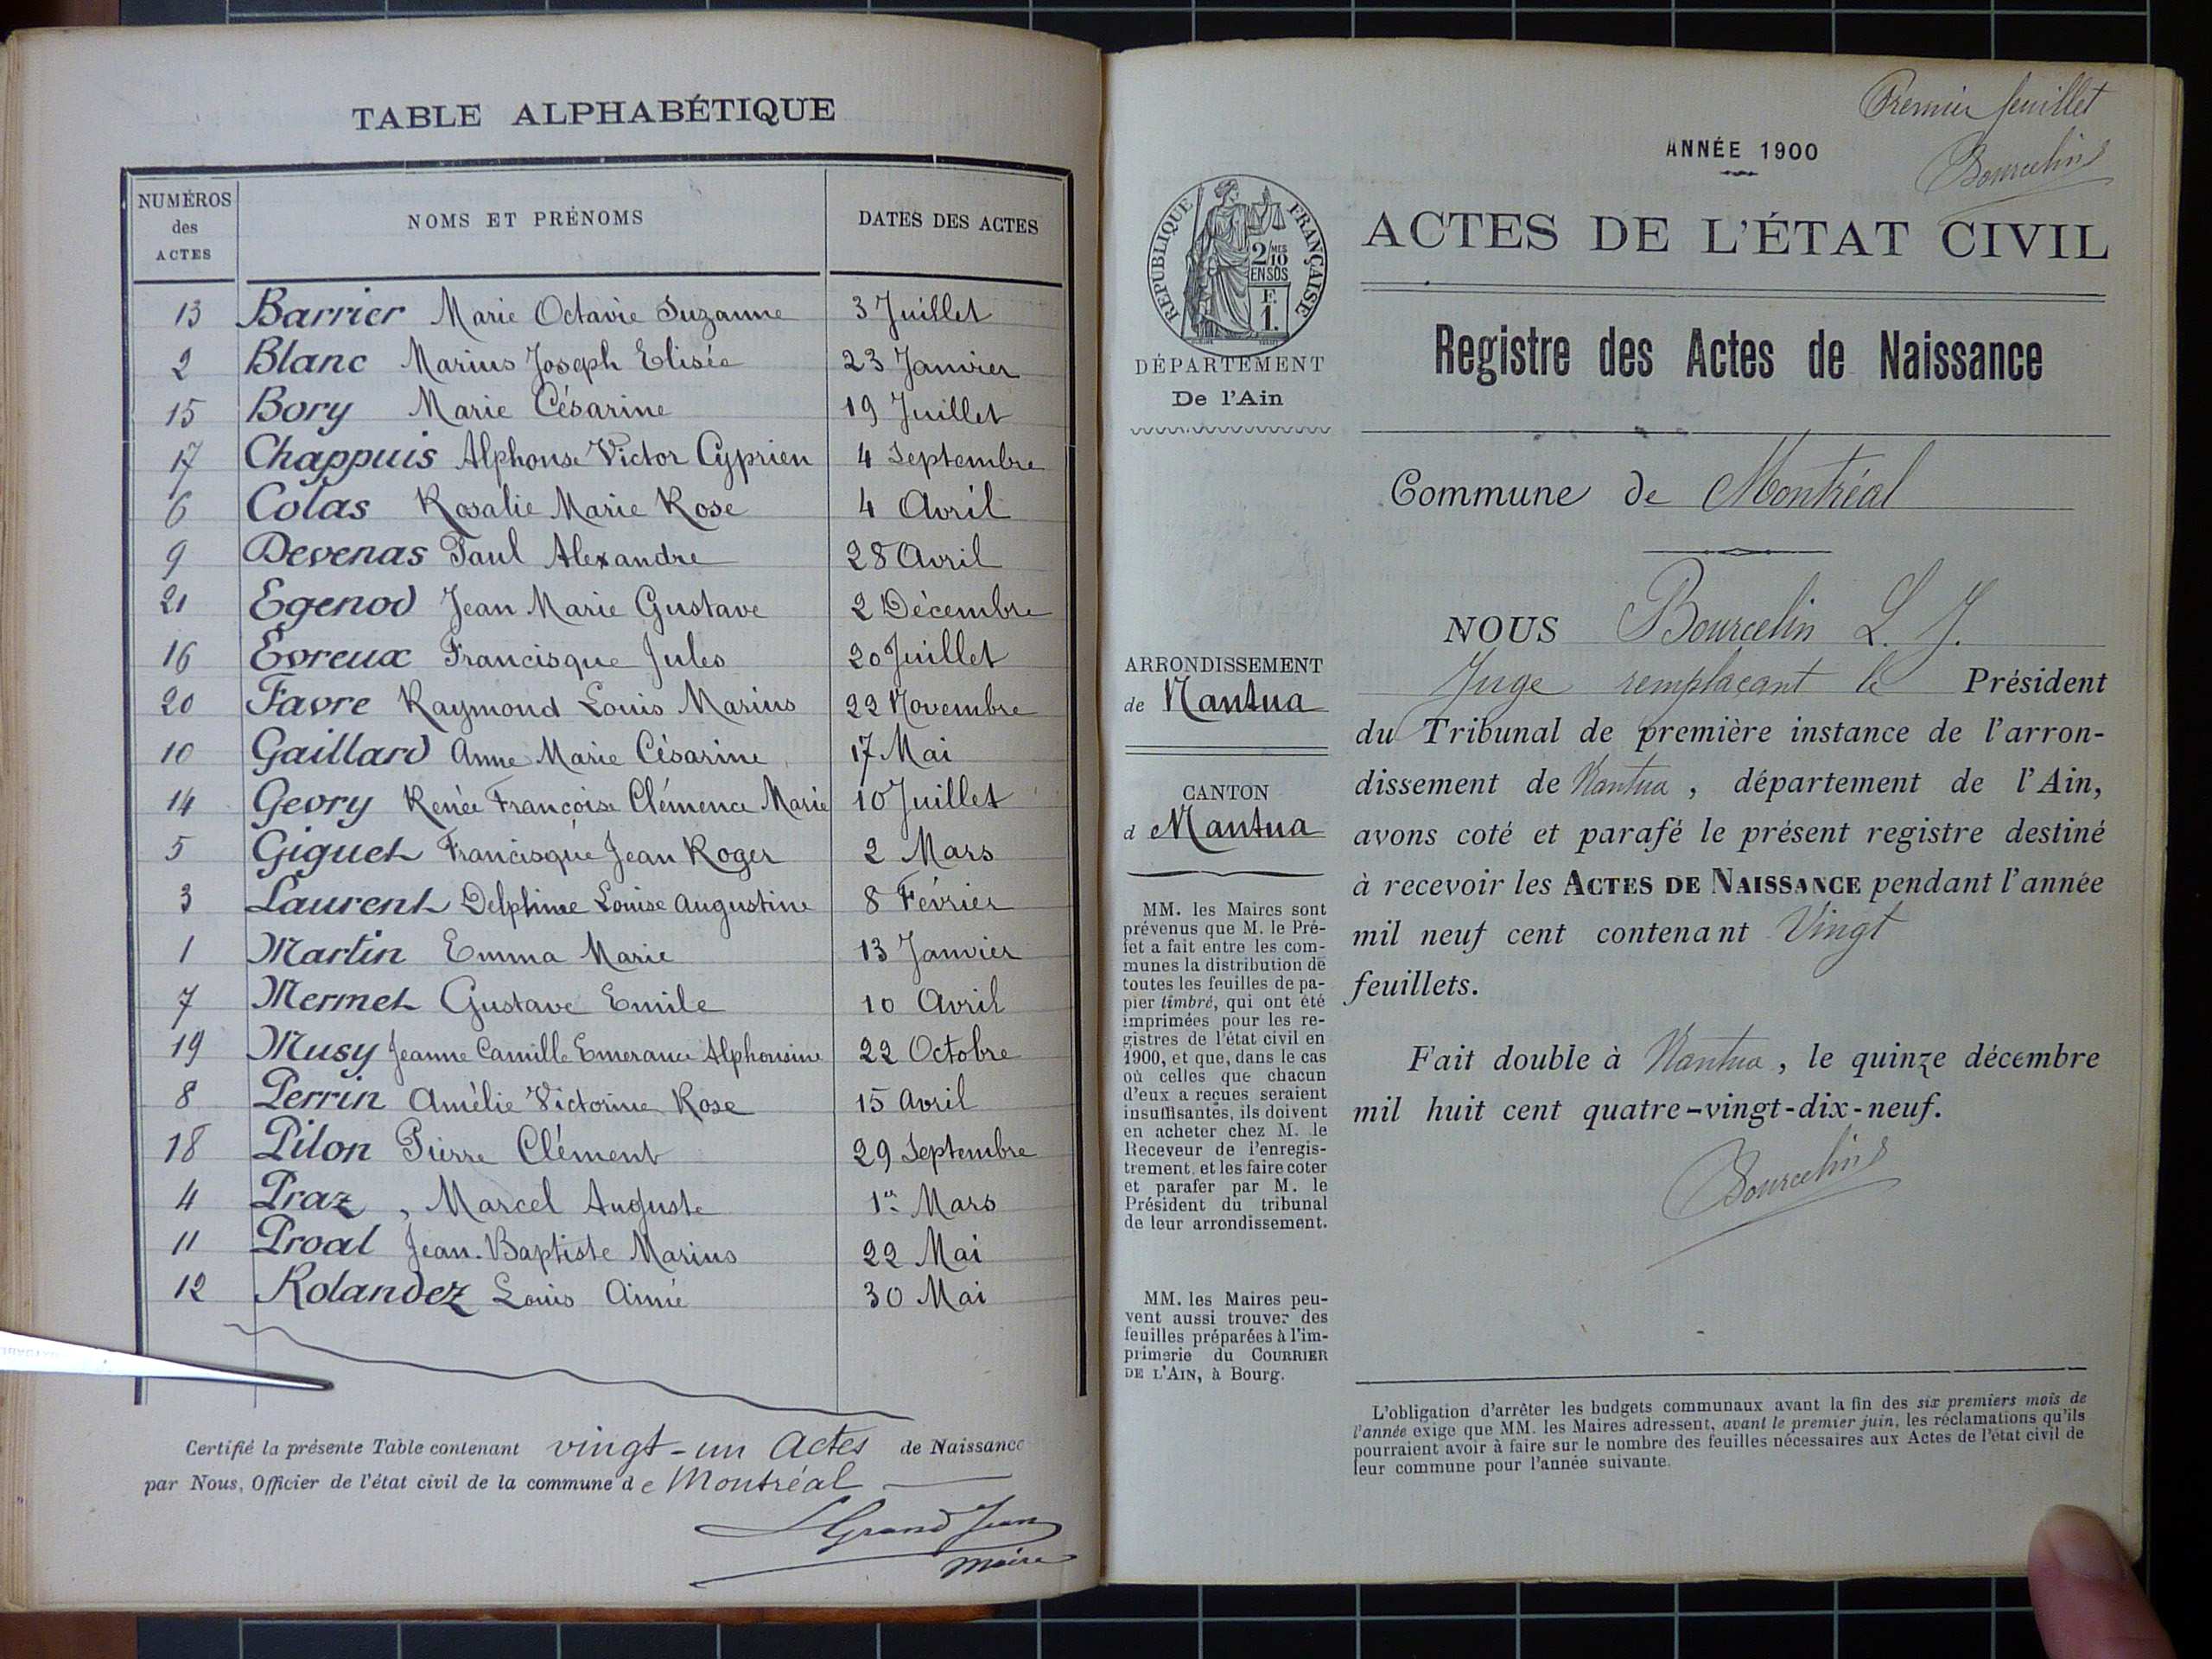 TABLE ALPHABÉTIQUE
NUMÉROS des ACTES NOMS ET PRÉNOMS DATES DES ACTES
13 Barrier Marie Octavie Suzanne 3 Juillet
2 Blanc Marius Joseph Elisée 23 Janvier
15 Bory Marie Césarine 19 Juillet
17 Chappuis Alphonse Victor Cyprien 4 Septembre
6 Colas Rosalie Marie Rose 4 Avril
9 Devenas Paul Alexandre 28 Avril
21 Egenod Jean Marie Gustave 2 Décembre
16 Evreux Francisque Jules 20 Juillet
20 Favre Raymond Louis Marius 22 Novembre
10 Gaillard Anne Marie Césarine 17 Mai
14 Gevry Renée Françoise Clémence Marie 10 Juillet
5 Giguet Francisque Jean Roger 2 Mars
3 Laurent Delphine Louise Augustine 8 Février
1 Martin Emma Marie 13 Janvier
7 Mermet Gustave Emile 10 Avril
19 Musy Jeanne Camille Emerance Alphonsine 22 Octobre
8 Perrin Amélie Victorine Rose 15 Avril
18 Pilon Pierre Clément 29 Septembre
4 Praz, Marcel Auguste 1er Mars
11 Proal Jean-Baptiste Marius 22 Mai
12 Rolandez Louis Aimé 30 Mai
Certifié la présente Table contenant vingt-un Actes de Naissance
par Nous, Officier de l'état civil de la commune de Montréal
LGrandJean
Maire
Premier feuillet
Bourcelin
ANNÉE 1900
RÉPUBLIQUE FRANÇAISE
2/10 MES
EN SUS
F.
1.
ACTES DE L'ÉTAT CIVIL
DÉPARTEMENT
De l'Ain
Registre des Actes de Naissance
Commune de Montréal
ARRONDISSEMENT
de Nantua
CANTON
d Nantua
MM. les Maires sont
prévenus que M. le Pré-
fet a fait entre les com-
munes la distribution de
toutes les feuilles de pa-
pier timbré, qui ont été
imprimées pour les re-
gistres de l'état civil en
1900, et que, dans le cas
où celles que chacun
d'eux a reçues seraient
insuffisantes, ils doivent
en acheter chez M. le
Receveur de l'enregis-
trement, et les faire coter
et parafer par M. le
Président du tribunal
de leur arrondissement.
MM. les Maires peu-
vent aussi trouver des
feuilles préparées à l'im-
primerie du COURRIER
DE L'AIN, à Bourg.
NOUS Bourcelin L. J.
Juge remplaçant le Président
du Tribunal de première instance de l'arron-
dissement de Nantua, département de l'Ain,
avons coté et parafé le présent registre destiné
à recevoir les ACTES DE NAISSANCE pendant l'année
mil neuf cent contenant Vingt
feuillets.
Fait double à Nantua, le quinze décembre
mil huit cent quatre-vingt-dix-neuf.
Bourcelin
L'obligation d'arrêter les budgets communaux avant la fin des six premiers mois de
l'année exige que MM. les Maires adressent, avant le premier juin, les réclamations qu'ils
pourraient avoir à faire sur le nombre des feuilles nécessaires aux Actes de l'état civil de
leur commune pour l'année suivante.